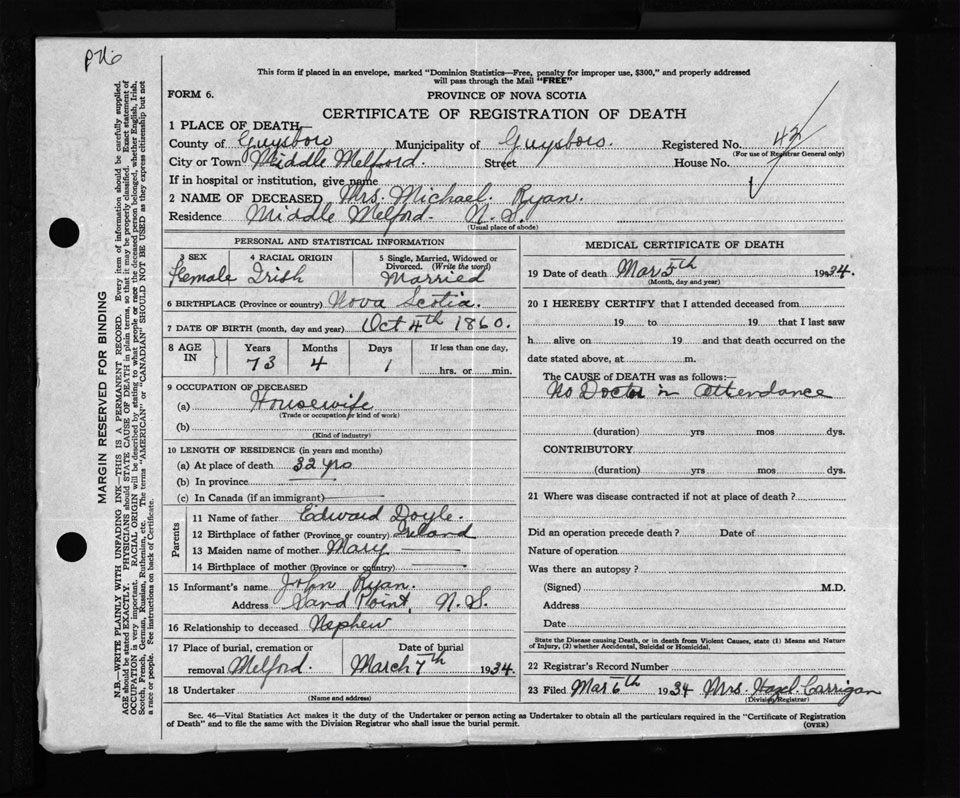 This form if placed in an envelope, marked "Dominion Statistics—Free, penalty for improper use, $300," and properly addressed
will pass through the Mail "FREE"
FORM 6.
PROVINCE OF NOVA SCOTIA
CERTIFICATE OF REGISTRATION OF DEATH
1 PLACE OF DEATH—
County of Guysboro Municipality of Guysboro. Registered No. 42
(For use of Registrar General only)
City or Town Middle Melford. Street House No.
If in hospital or institution, give name
2 NAME OF DECEASED Mrs. Michael. Ryan.
Residence Middle Melford. N. S.
(Usual place of abode)
PERSONAL AND STATISTICAL INFORMATION
3 SEX 4 RACIAL ORIGIN 5 Single, Married, Widowed or
Divorced. (Write the word)
Female Irish Married
6 BIRTHPLACE (Province or country) Nova Scotia.
7 DATE OF BIRTH (month, day and year) Oct 4th 1860.
8 AGE IN Years Months Days If less than one day,
73 4 1 hrs. or min.
9 OCCUPATION OF DECEASED
(a) Housewife
(Trade or occupation or kind of work)
(b)
(Kind of industry)
10 LENGTH OF RESIDENCE (in years and months)
(a) At place of death 32 yrs
(b) In province
(c) In Canada (if an immigrant)
Parents
11 Name of father Edward Doyle.
12 Birthplace of father (Province or country) Ireland
13 Maiden name of mother Mary
14 Birthplace of mother (Province or country)
15 Informant's name John Ryan.
Address Sand Point, N. S.
16 Relationship to deceased Nephew
17 Place of burial, cremation or Date of burial
removal Melford. March 7th 1934
18 Undertaker
(Name and address)
MEDICAL CERTIFICATE OF DEATH
19 Date of death Mar 5th 1934.
(Month, day and year)
20 I HEREBY CERTIFY that I attended deceased from
19 to 19 that I last saw
h alive on 19 and that death occurred on the
date stated above, at m.
The CAUSE of DEATH was as follows:—
No Doctor in attendance
(duration) yrs mos dys.
CONTRIBUTORY
(duration) yrs mos dys.
21 Where was disease contracted if not at place of death ?
Did an operation precede death ? Date of
Nature of operation
Was there an autopsy ?
(Signed) M.D.
Address
Date
State the Disease causing Death, or in death from Violent Causes, state (1) Means and Nature
of Injury, (2) whether Accidental, Suicidal or Homicidal.
22 Registrar's Record Number
23 Filed Mar 6th 1934 Mrs. Hazel Carrigan
(Division Registrar)
Sec. 46—Vital Statistics Act makes it the duty of the Undertaker or person acting as Undertaker to obtain all the particulars required in the "Certificate of Registration
of Death" and to file the same with the Division Registrar who shall issue the burial permit. (OVER)
MARGIN RESERVED FOR BINDING
N.B.—WRITE PLAINLY WITH UNFADING INK—THIS IS A PERMANENT RECORD. Every item of information should be carefully supplied.
AGE should be stated EXACTLY. PHYSICIANS should STATE CAUSE OF DEATH in plain terms, so that it may be properly classified. Exact statement of
OCCUPATION is very important. RACIAL ORIGIN will be described by stating to what people or race the deceased person belonged, whether English, Irish,
Scotch, French, German, Russian, Ruthenian, etc. The terms "AMERICAN" or "CANADIAN" SHOULD NOT BE USED as they express citizenship but not
a race or people. See instructions on back of Certificate.